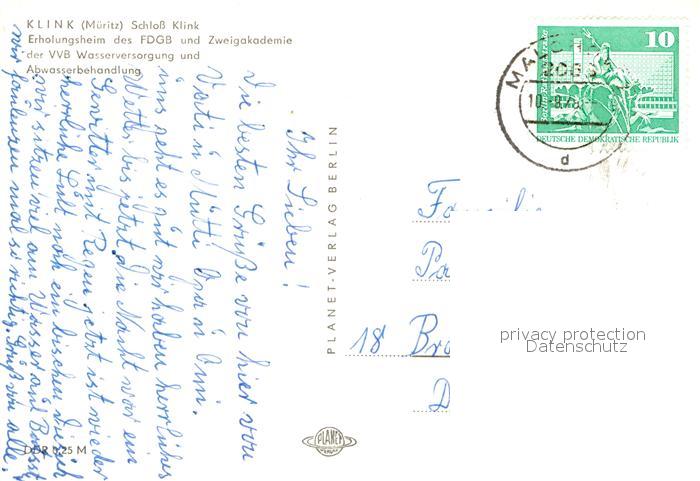 KLINK (Müritz) Schloß Klink
Erholungsheim des FDGB und Zweigakademie
der VVB Wasserversorgung und
Abwasserbehandlung
Ihr Lieben!
Die besten Grüße von hier von
Vati u Mutti Opa u Omi.
uns geht es gut wir haben herrliches
Wetter bis jetzt, die Nacht war ein
Gewitter mit Regen jetzt ist wieder
herrliche Luft noch ein bischen diesich
wir sitzen viel am Wasser auf
wir faulenzen mal so richtig. Gruß an alle.
DDR 0,25 M
PLANET-VERLAG BERLIN
PLANET
VERLAG
10
DEUTSCHE DEMOKRATISCHE REPUBLIK
d
Fa
Pa
18 Bra
D
privacy protection
Datenschutz